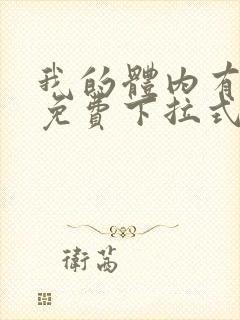 我的體內有
免費下拉式
衛茜